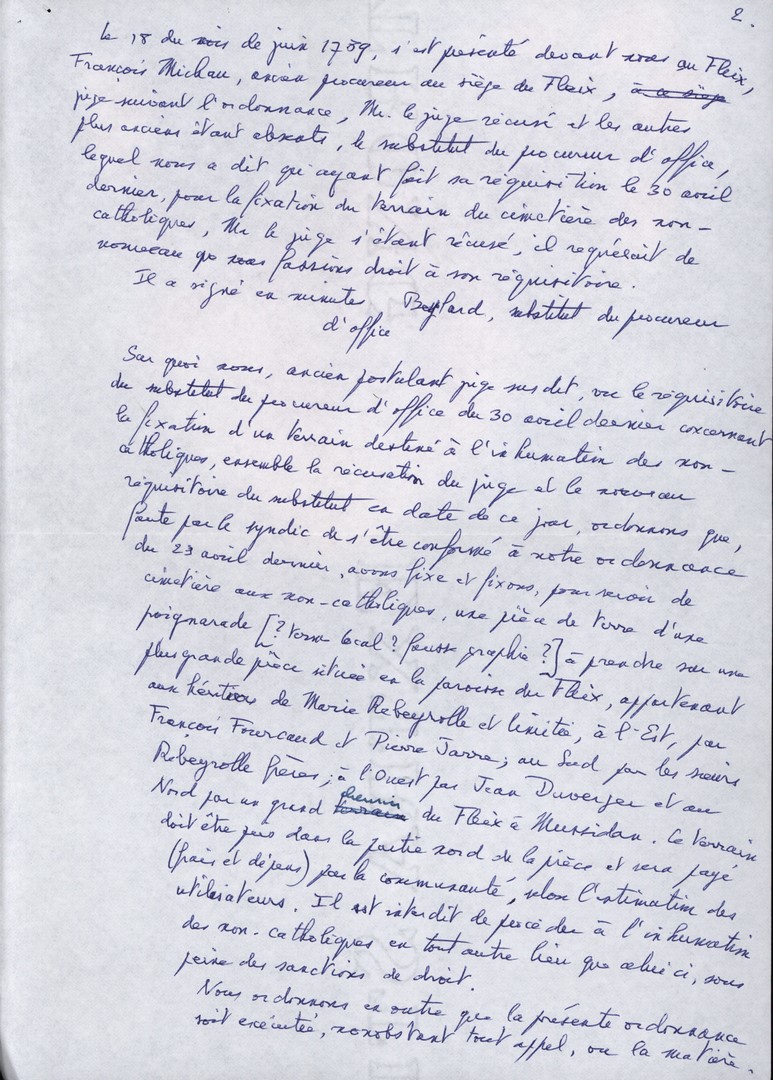 2.
Le 18 du mois de juin 1789, s'est présenté devant nous au Fleix,
François Michau, ancien procureur au siège du Fleix, à ce siège
juge suivant l'ordonnance, Mr. le juge récusé et les autres
plus anciens étant absents, le substitut du procureur d'office,
lequel nous a dit qu'ayant fait sa réquisition le 30 avril
dernier, pour la fixation du terrain du cimetière des non-
catholiques, Mr le juge s'étant récusé, il requérait de
nouveau que nous fassions droit à son réquisitoire.
Il a signé en minutes substitut du procureur
d'office
Sur quoi nous, ancien postulant juge susdit, vu le réquisitoire
du substitut du procureur d'office du 30 avril dernier concernant
la fixation d'un terrain destiné à l'inhumation des non-
catholiques, ensemble la récusation du juge et le nouveau
réquisitoire du substitut en date de ce jour, ordonnons que,
faute par le syndic de s'être conformé à notre ordonnance
du 23 avril dernier, avons fixé et fixons, pour servir de
cimetière aux non-catholiques, une pièce de terre d'une
poignarade [? terme local ? fausse graphie ?] à prendre sur une
plus grande pièce située en la paroisse du Fleix, appartenant
aux héritiers de Marie Rebeyrolle et limitée, à l'Est, par
François Fourcaud et Pierre Jarre; au Sud par les sœurs
Rebeyrolle frères; à l'Ouest par Jean Duverger et au
Nord par un grand chemin du Fleix à Mussidan. Ce terrain
doit être pris dans la partie nord de la pièce et sera payé
(frais et dépens) par la communauté, selon l'estimation des
utilisateurs. Il est interdit de procéder à l'inhumation
des non-catholiques en tout autre lieu que celui ci, sous
peine des sanctions de droit.
Nous ordonnons en outre que la présente ordonnance
soit exécutée, nonobstant tout appel, vu la matière.